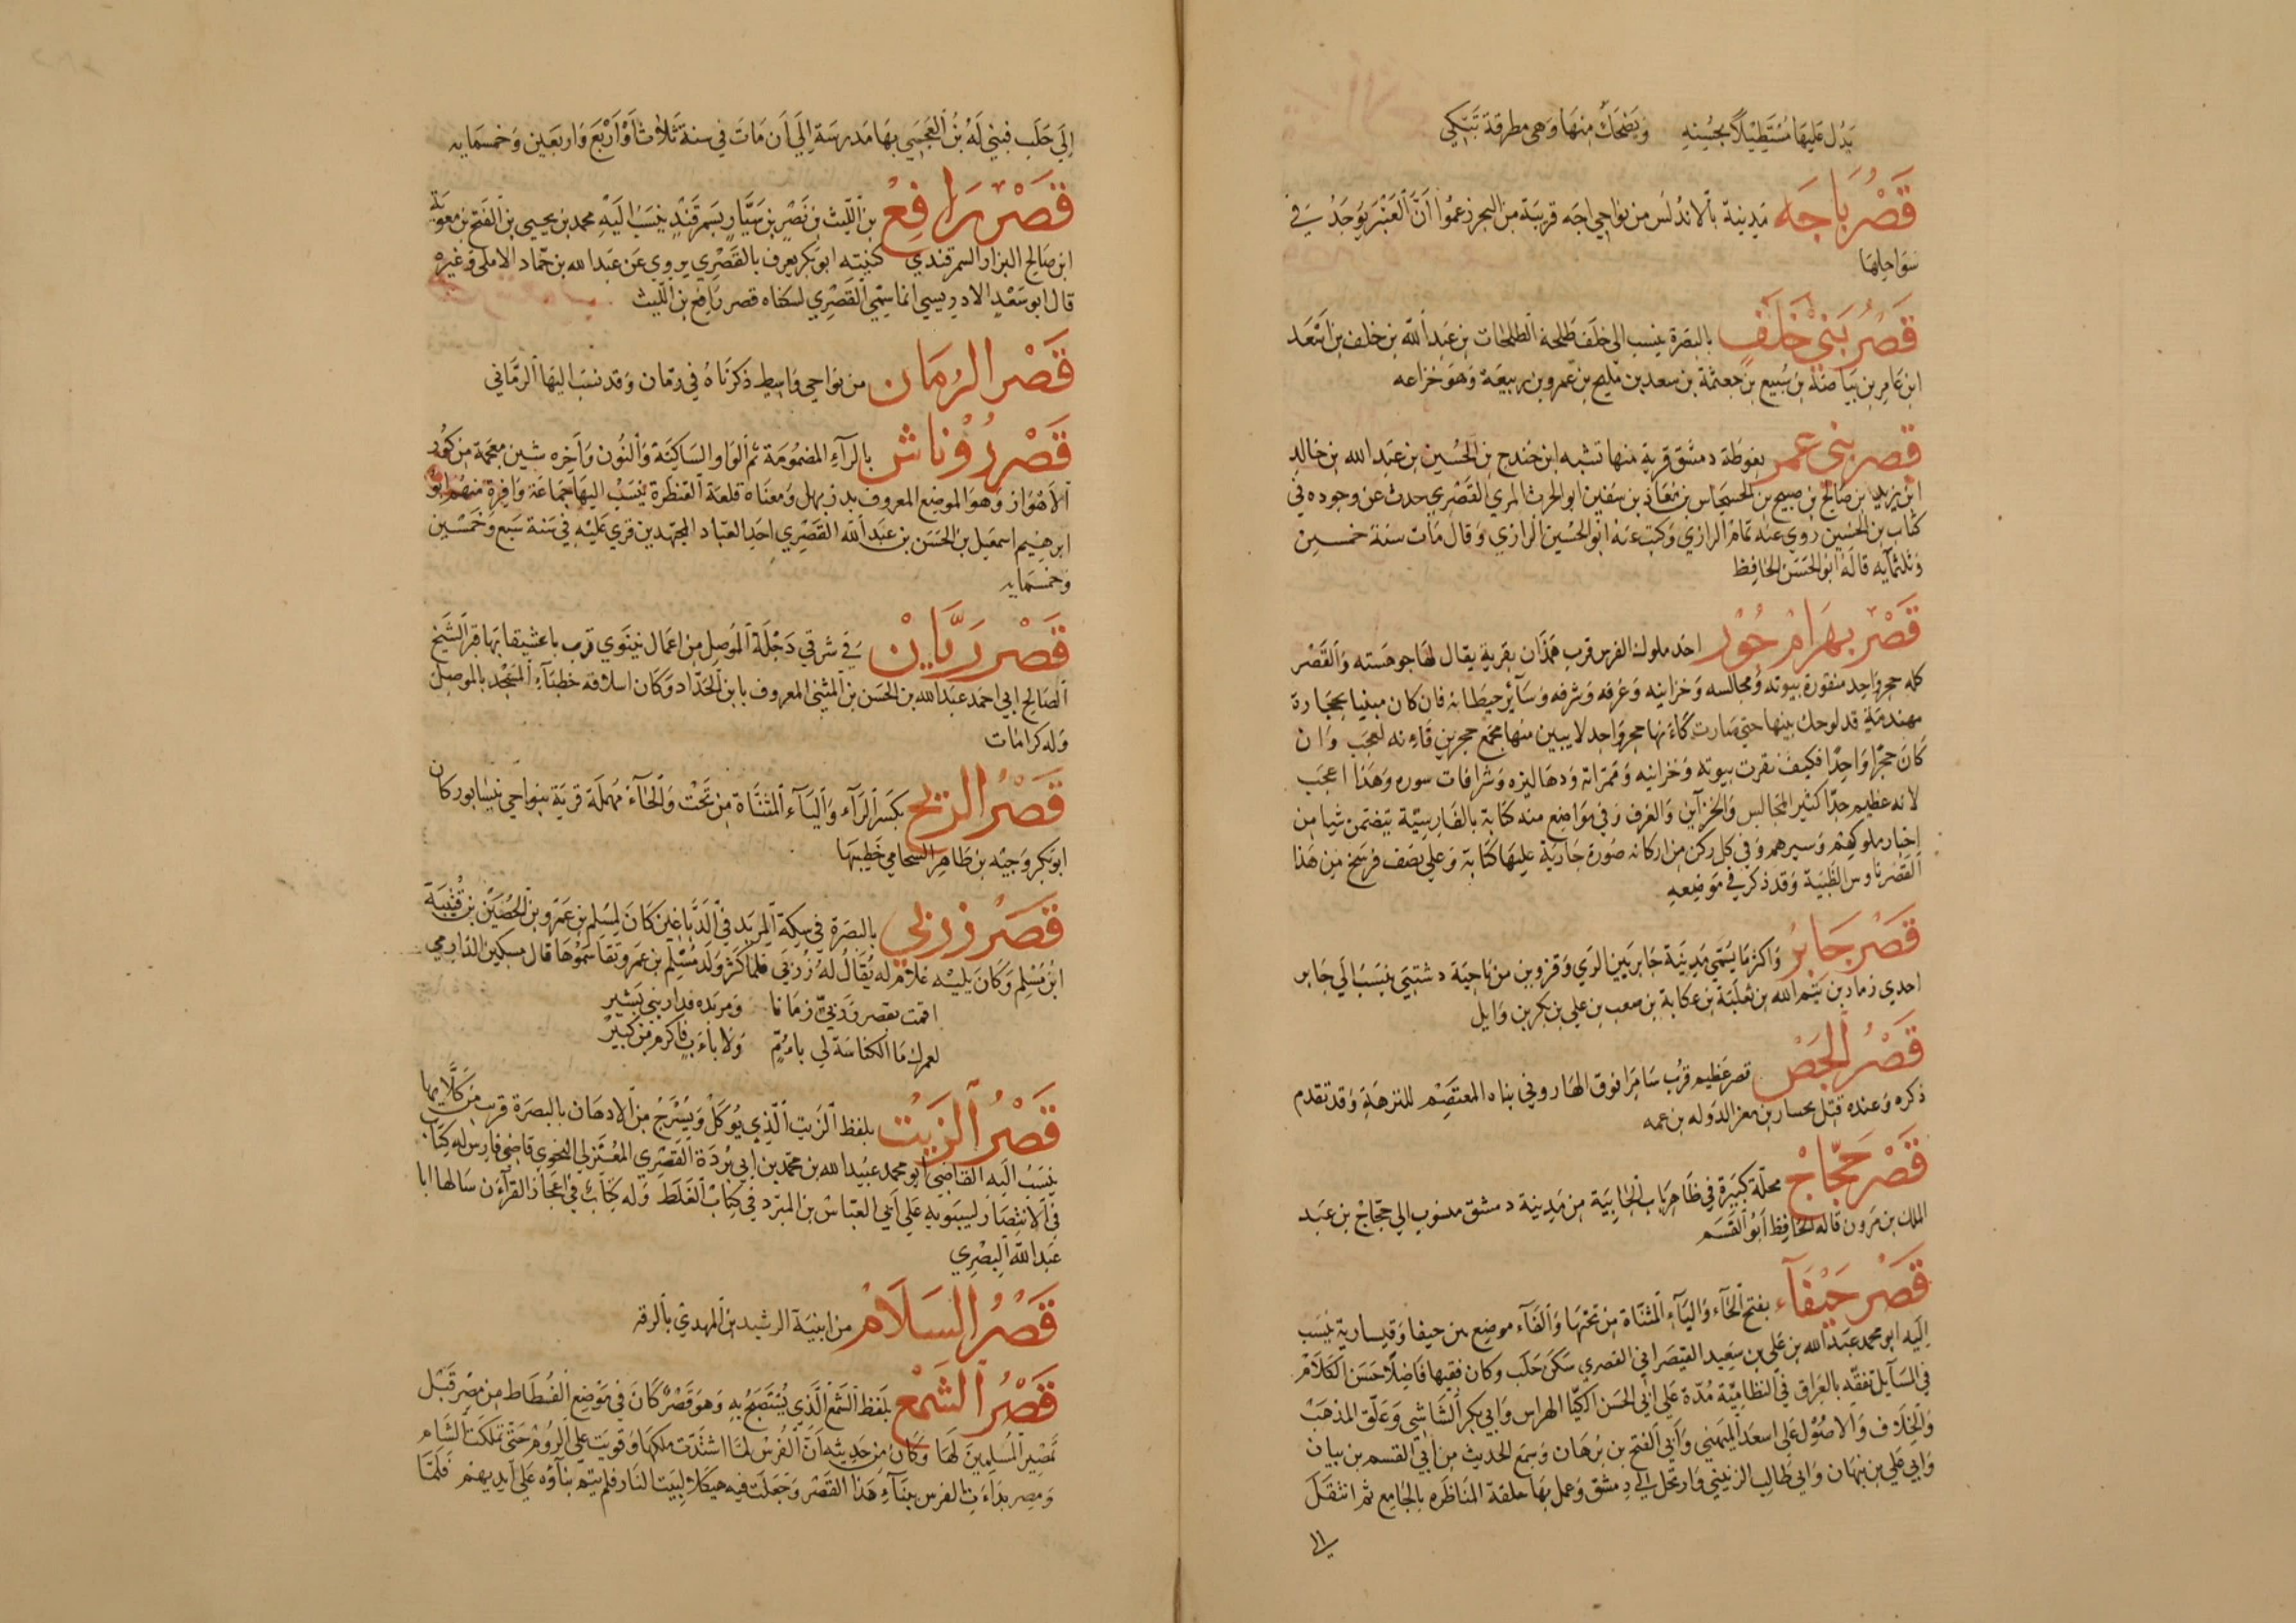 يَدُل عَليهَا مُسْتَطِيْلاً بحُسْنِهِ وَيَضْحَكُ مِنهَا وَهى مطرقة تَبْكِي
قَصْرُ بَاجَه مَدِينة بالاندلس من نواحي باجَه قريبَة من البحر زعمُوا أَنَّ العَنْبَرَ يُوجَدُ فِي
سَوَاحِلهَا
قَصْرُ بَنِيْ خَلَفٍ بالبصَرة ينسب الى خلف طَلحة الطلحات بن عَبد الله بن خلف بن اَسْعَد
ابن عَامِر بن بَيَاضَة بن سُبَيع بن جعثمَة بن سعد بن مليح بن عَمرو بن ربيعَة وَهوَ خزاعه
قصر بنى عمر بغوطَة دمشق قرية منها نشبه ابن حندج بن الحُسَين بن عَبد الله بن خالد
ابن يزيد بن صَالح بن صبيح بن الحسحاس بن مُعَاذ بن سفين ابو الحرث المري القَصْرِي حدث عن وجوده في
كتاب بن الحسَين روي عنه تمام الرازي وَكتبَ عَنهُ ابو الحسَين الرازي وَقال مَات سَنة خمسين
وَثلثمايه قالهُ ابو الحَسَن الحَافِظ
قَصْرُ بهَرَامْ جُوْر احَد ملوك الفرس قرب هَمَذَان بقرية يقال لهَا جوهسته وَالقَصْر
كله حجر وَاحِد منقورة بيوته وَمجَالسه وَخزاينه وَغرفه وَشرفه وَسَآئِر حيطانه فان كان مبنيا بحجَارة
مهندمَة قد لوحك بينها حتى صَارت كَاَنهَا حجر وَاحِد لا يبين منهَا مجمَع حجرين فَاِنه لعجَب وَان
كانَ حجَرًا وَاحِدًا فكيف نقرت بيوته وَخزاينه وَممَرّاته وَدهَاليزه وَشرافات سوره وَهَذا اعجَب
لانه عظيم جدًّا كثير المجَالس وَالخزآين وَالغرف وَفي مَوَاضِع منه كتابة بالفارسيّة يتضَمن شيا من
اخبار ملوكهم وَسيرهم وَفي كل ركن من اركانه صُورة جارية عليها كتابة وَعلي نصف فرسَخ من هَذا
القَصْر ناوس الظبْيَة وَقد ذكر في مَوضِعه
قَصْرُ جَابِرْ وَاكثر مَا يُسَمّي مَدِينة جَابر بَين الري وَقزوين من ناحِيَة دشتبَي ينسَبُ الَي جَابر
احدي زمان بن تَيم الله بن ثعلبَة بن عكابة بن صعب بن علي بن بكر بن وَايل
قَصْرُ اُلجَصْ قصر عَظيم قُرب سَامَرا فوق الهَاروني بنَاه المعتَصِم للنزهَةِ وَقد تقدم
ذكره وَعنده قتل بختيار بن معز الدَوله بن عمه
قَصْر حَجّاجْ محلّة كبَيرة في ظَاهِر بَاب الجابيَة مِن مَدِينة دمشق منسُوب الي حجَّاج بن عَبَد
الملك بن مَرون قاله الحَافِظ ابُو القسَم
قَصْر حَيْفَآء بفتح الحَآءِ وَاليَآءِ المثناة من تحتهَا وَالفَآءِ موضِع بين حيفا وَقيسارية ينسَب
اِليَه ابو محمد عَبد الله بن عَلي بن سَعِيد القيصَراني القصري سَكنَ حَلبَ وكان فقيها فَاضِلاً حَسَن الكَلَامْ
في المسَآيل تفقّه بالعِرَاق في النظامِيّة مُدّة عَلي ابي الحسَن الكيّا الهراس وَابي بكر الشَاشِي وَعَلّق المذهَبْ
وَالخِلَاف وَالاصُول عَلي اسعَد الميهَني وَابي الفتح بن برهَان وَسَمِعَ الحديث من ابي القسم بن بيان
وَابي علي بن نبهان وَابي طَالِب الزينبي وَارتحَل اِلَي دِمشق وَعمل بهَا حلقة المنَاظَره بالجَامِع ثم انتقَلَ
الي
اِلَي حَلَبَ فبني لَهُ بنُ العَجَمي بهَا مَدرسَة اِلَي اَن مَاتَ في سنة ثَلاثٍ اَوْ اَرْبَعَ وَاربَعَين وَخمسمَايه
قَصْرُ رَافِعْ بنُ اللّيث بن نَصْر بن سَيَّار بسَمرقَنْد ينسَبُ الَيْهِ محمد بن يحيى بن الفتح بن معوية
ابن صَالح البزار السمرقندي كنيته ابو بَكر يعرف بالقَصْرِي يروي عَن عَبد الله بن حمّاد الاملى وَغيره
قال ابو سَعْد الادريسي انما سمِّي القَصْرِي لسكناه قصر رَافع بن اللّيث
قَصْر الرُمَّان من نوَاحي وَاسِط ذكرنَاهُ في رمّان وَقد نسَب اليهَا الرمَّاني
قَصْر رُوْنَاش بالرآءِ المضمُومَة ثم الوَاو السَاكِنَة وَالنُون وَآخِره شين معجمَة من كُور
الاَهْوَاز وَهوَ الموضِع المعروف بدزبهل وَمعنَاه قلعَة القنطرة ينسَبْ اليهَا جماعَة وَافِرة منهم ابو
ابرهيم اسمعيل بن الحَسَن بن عَبَد الله القَصْرِي احَد العبّاد المجتهدين قري عَلَيْه في سَنة سَبع وَخمْسين
وَخمسَمايه
قَصْر رَيَّانْ فِي شرقي دَجْلَة المَوصِل من اعمَال نينَوي قرب باعشيقا بهَا قبر الشَيخ
الصَالِح ابي احمد عَبَد الله بن الحسَن بن المثني المعروف بابن الحَدّاد وَكان اسلافه خطبَآءِ المسَجْد بالموصل
وَله كرامات
قَصْرُ الرّيحْ بكسَر الرآءِ وَاليَآءِ المثنَّاة من تَحْت وَالحَآءُ مهملَة قريَة بنواحي نيسَابور كان
ابو بكر وَجيه بن طَاهِر الشحامي خَطِيبهَا
قَصْرُ زَرْبِي بالبصَرة في سِكة المربَد في الدَبَّاغَين كانَ لمسْلم بن عمَرو بن الحُصَيْن بن قُتيبَة
ابنُ مُسْلِم وَكَانَ يليَه غلاَمُ له يُقَالُ لهُ زُرْبَي فلمّا كَثُر وَلد مُسْلم بن عمَرو تقاسَمُوهَا قال مسكين الدّارمي
اقمت بقصر زربيّ زمَانا وَمربَده فدار بني بَشير
لعمرك مَا الكناسَة لي بامٍّ وَلاَ باَءَبٍ فاكرم من كبيْر
قَصْرُ اَلزَيْت بلفظ الزَيت الّذي يُوكلُ وَيُسْرَجُ من الادهَان بالبصرَة قرب من كلّائها
ينسَبُ اليَه القَاضِي ابو محمد عبَيد الله بن محمَّد بن ابي بُرْدَة القَصْرِي المعْتزلي النحوي قاضي فارس له كتاب
في الانتصَار لسيبَويه عَلي اَبي العبّاس بن المبَرّد في كتابْ الغَلَط وَله كتابْ في اعجَاز القرآن سَالها ابا
عَبد اللّه البصْرِي
قَصْرُ السَلَامْ من ابنيَة الرشيد بن المهدي بالرقه
قَصْرُ الشَمْع بلَفظ الشَمْع الَّذي يُسْتَصْبَحُ بِه وَهوَ قَصْرٌ كَانَ في مَوْضِع الفُسطَاط من مصْر قَبْل
تمصِير المسْلمِينَ لهَا وَكانَ من حَدِيثه اَنَّ الفُرْسَ لمَّا اشتدّت ملكها وَقويَت علي الروُمْ حَتي تملكَت الشَام
وَمِصر بدَاءَت الفرس ببنَآءِ هَذا القَصْر وَجَعَلَت فيه هيكلاً لِبيَت النَار فلم يتم بنآؤه عَلي اَيديهمْ فَلَمَّا